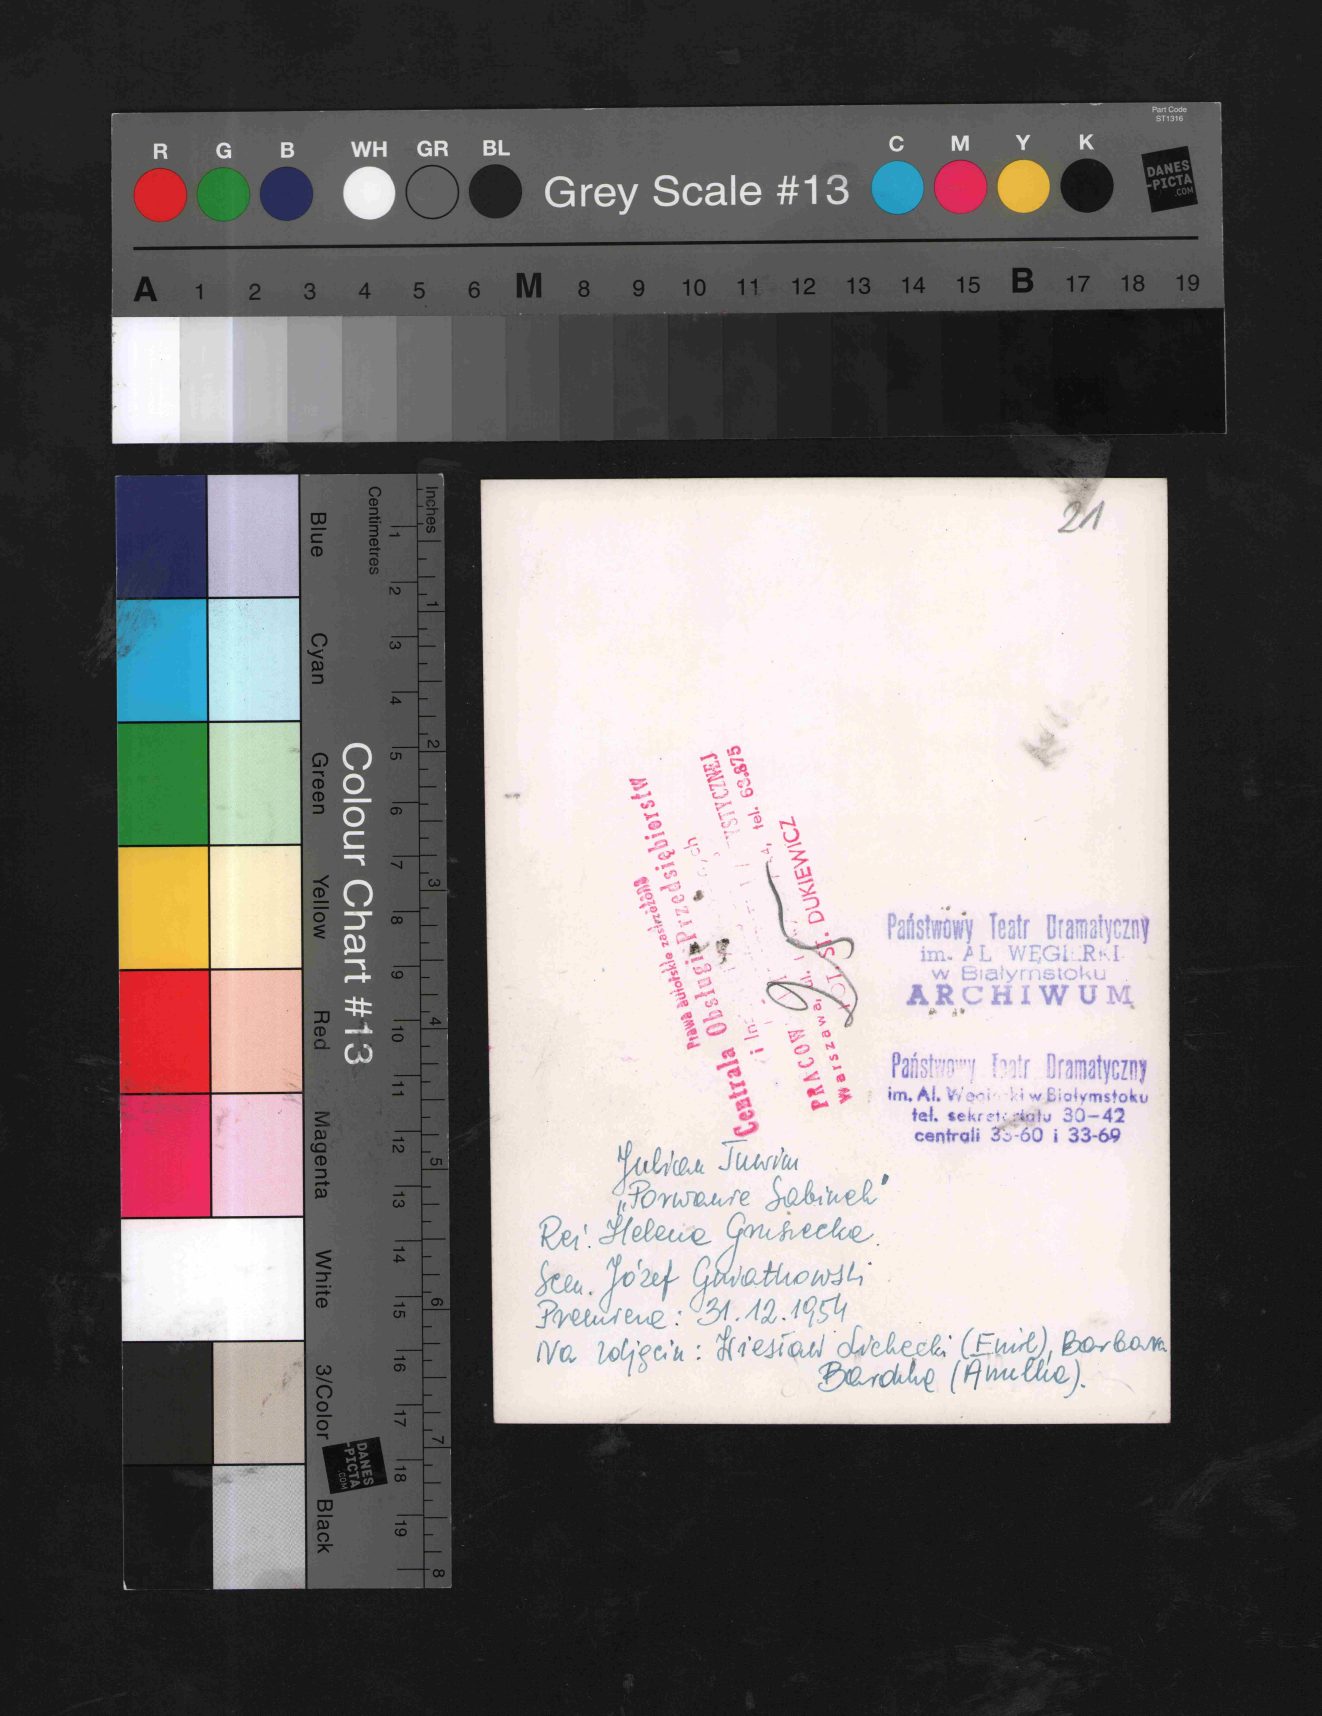 Part Code
ST1316
R G B WH GR BL Grey Scale #13 C M Y K
DANES
-PICTA
.COM
A 1 2 3 4 5 6 M 8 9 10 11 12 13 14 15 B 17 18 19
Colour Chart #13
Blue
Cyan
Green
Yellow
Red
Magenta
White
3/Color
Black
Centimetres
1 2 3 4 5 6 7 8 9 10 11 12 13 14 15 16 17 18 19
Inches
1 2 3 4 5 6 7 8
DANES
-PICTA
.COM
21
Prawa autorskie zastrzeżone
Centrala Obsługi Przedsiębiorstw
i
PRACOW
Warszawa, ul. tel. 63.875
FOT. ST. DUKIEWICZ
Państwowy Teatr Dramatyczny
im. AL. WĘGIERKI
w Białymstoku
ARCHIWUM
Państwowy Teatr Dramatyczny
im. Al. Węgierki w Białymstoku
tel. sekretariatu 30-42
centrali 33-60 i 33-69
Julian Tuwim
„Porwanie Sabinek"
Reż. Helena Grusiecka.
Scen. Józef Gwiatkowski
Premiera: 31.12.1954
Na zdjęciu: Wiesław Lichecki (Emil), Barbara
Bardzka (Anulka).